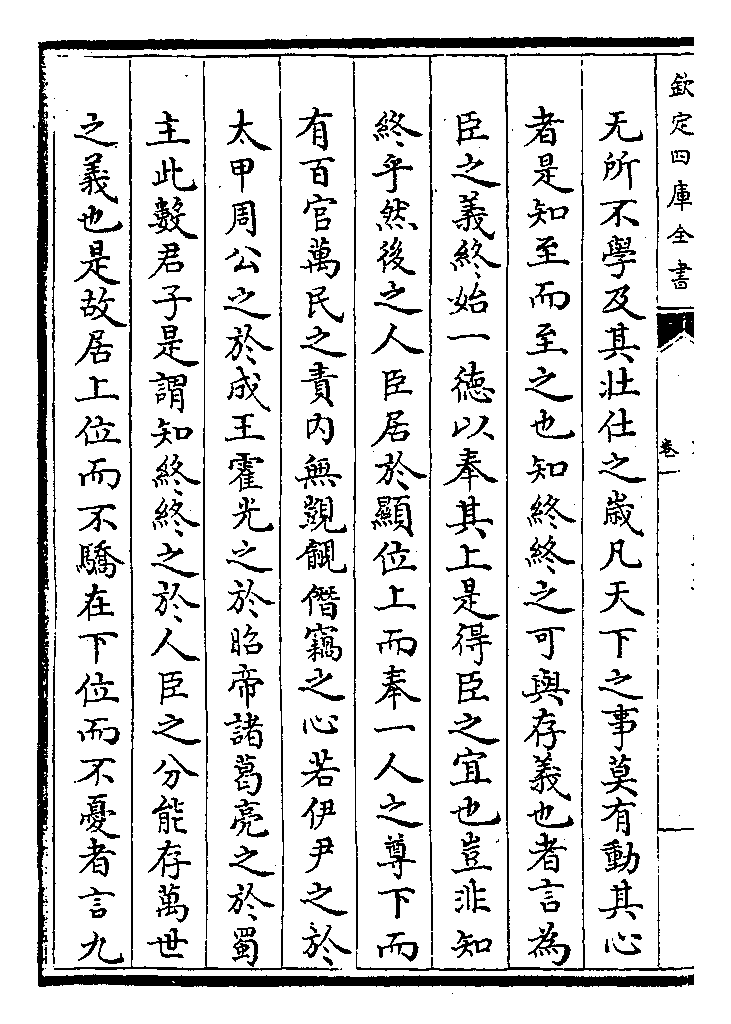 欽定四庫全書
卷一
无所不學及其壯仕之歲凡天下之事莫有動其心
者是知至而至之也知終終之可與存義也者言為
臣之義終始一德以奉其上是得臣之宜也豈非知
終乎然後之人臣居於顯位上而奉一人之尊下而
有百官萬民之責內無覬覦僭竊之心若伊尹之於
太甲周公之於成王霍光之於昭帝諸葛亮之於蜀
主此數君子是謂知終終之於人臣之分能存萬世
之義也是故居上位而不驕在下位而不憂者言九